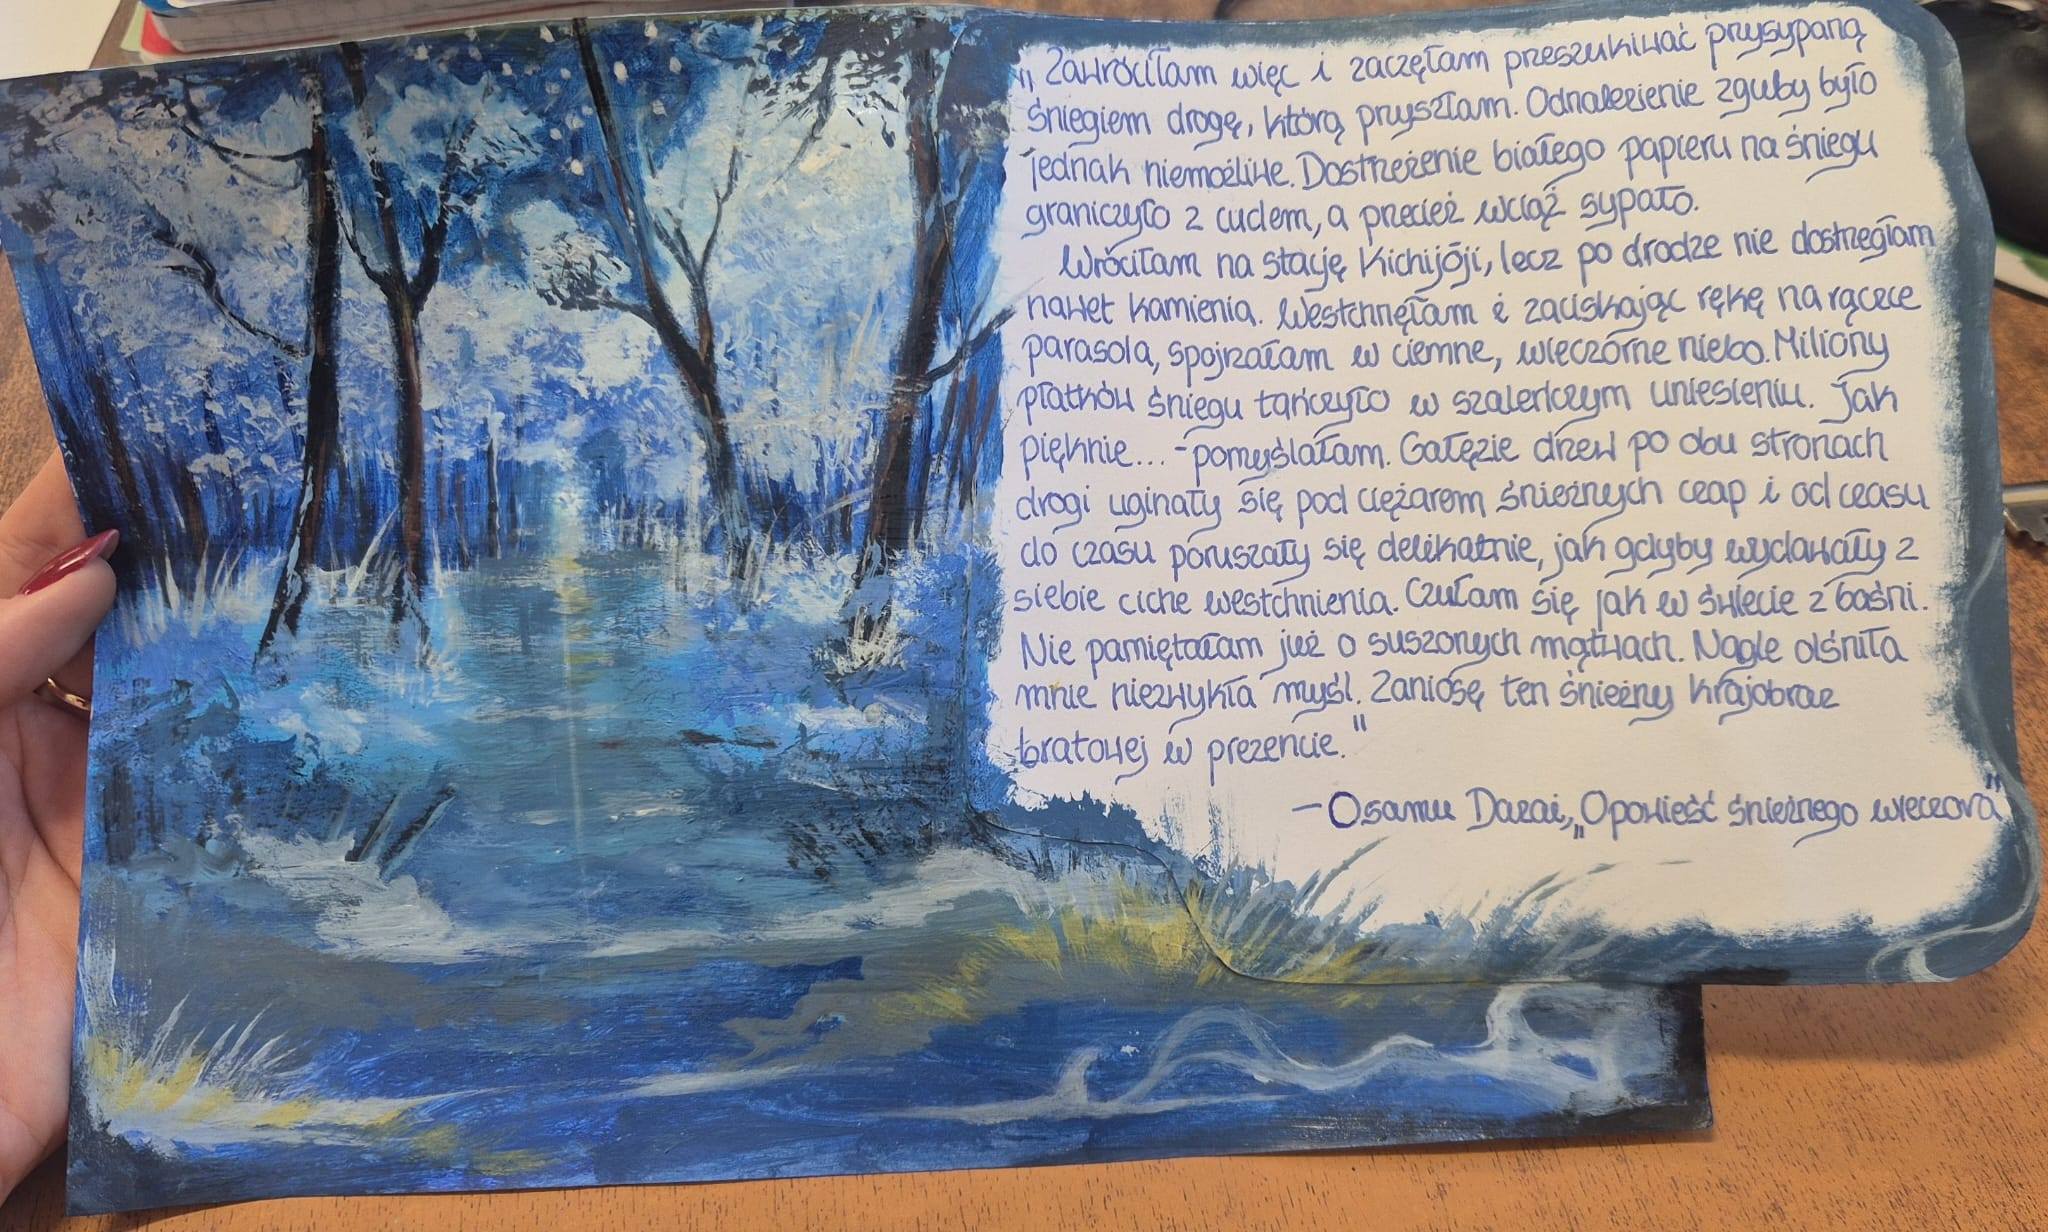 „Zawróciłam więc i zaczęłam przeszukiwać przysypaną
śniegiem drogę, którą przyszłam. Odnalezienie zguby było
jednak niemożliwe. Dostrzeżenie białego papieru na śniegu
graniczyło z cudem, a przecież wciąż sypało.
Wróciłam na stację Kichijōji, lecz po drodze nie dostrzegłam
nawet kamienia. Westchnęłam i zaciskając rękę na rączce
parasola, spojrzałam w ciemne, wieczorne niebo. Miliony
płatków śniegu tańczyło w szaleńczym uniesieniu. Jak
pięknie... - pomyślałam. Gałęzie drzew po obu stronach
drogi uginały się pod ciężarem śnieżnych czap i od czasu
do czasu poruszały się delikatnie, jak gdyby wydawały z
siebie ciche westchnienia. Czułam się jak w świecie z baśni.
Nie pamiętałam już o suszonych mątwach. Nagle olśniła
mnie niezwykła myśl. Zaniosę ten śnieżny krajobraz
bratowej w prezencie."
— Osamu Dazai, „Opowieść śnieżnego wieczora"